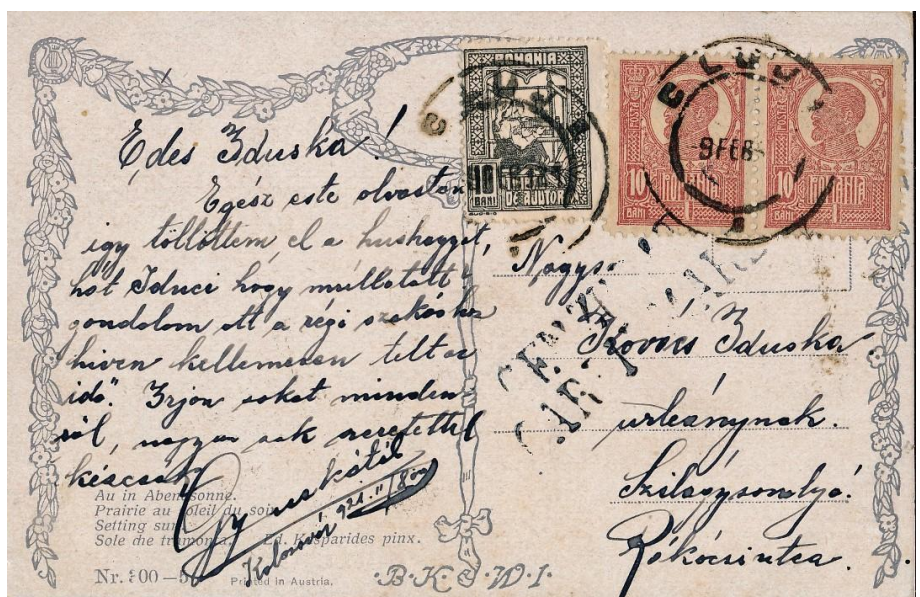 Édes Iduska!
Egész este olvastam
így töltöttem el a hushagyót,
hát Iduci hogy mullatott
gondolom ott a régi szokáshoz
hiven kellemesen telt az
idő. Irjon sokat minden
ről, nagyon sok szeretettel
Gyuskától
Kolozsvár 921. II/8án
Au in Abendsonne.
Prairie au soleil du soir.
Setting sun.
Sole che tramonta. Ed. Kasparides pinx.
Nr. 500—5
Printed in Austria.
B.K.W.I.
ROMANIA
10 BANI
DE AJUTOR
CLUJ
POSTA
10 BANI
ROMANIA
POSTA
10 BANI
ROMANIA
CLUJ
9 FEB
CENZURAT
Nagys.
Kovács Iduska
urleánynak.
Szilágysomlyó.
Rákóci utca.